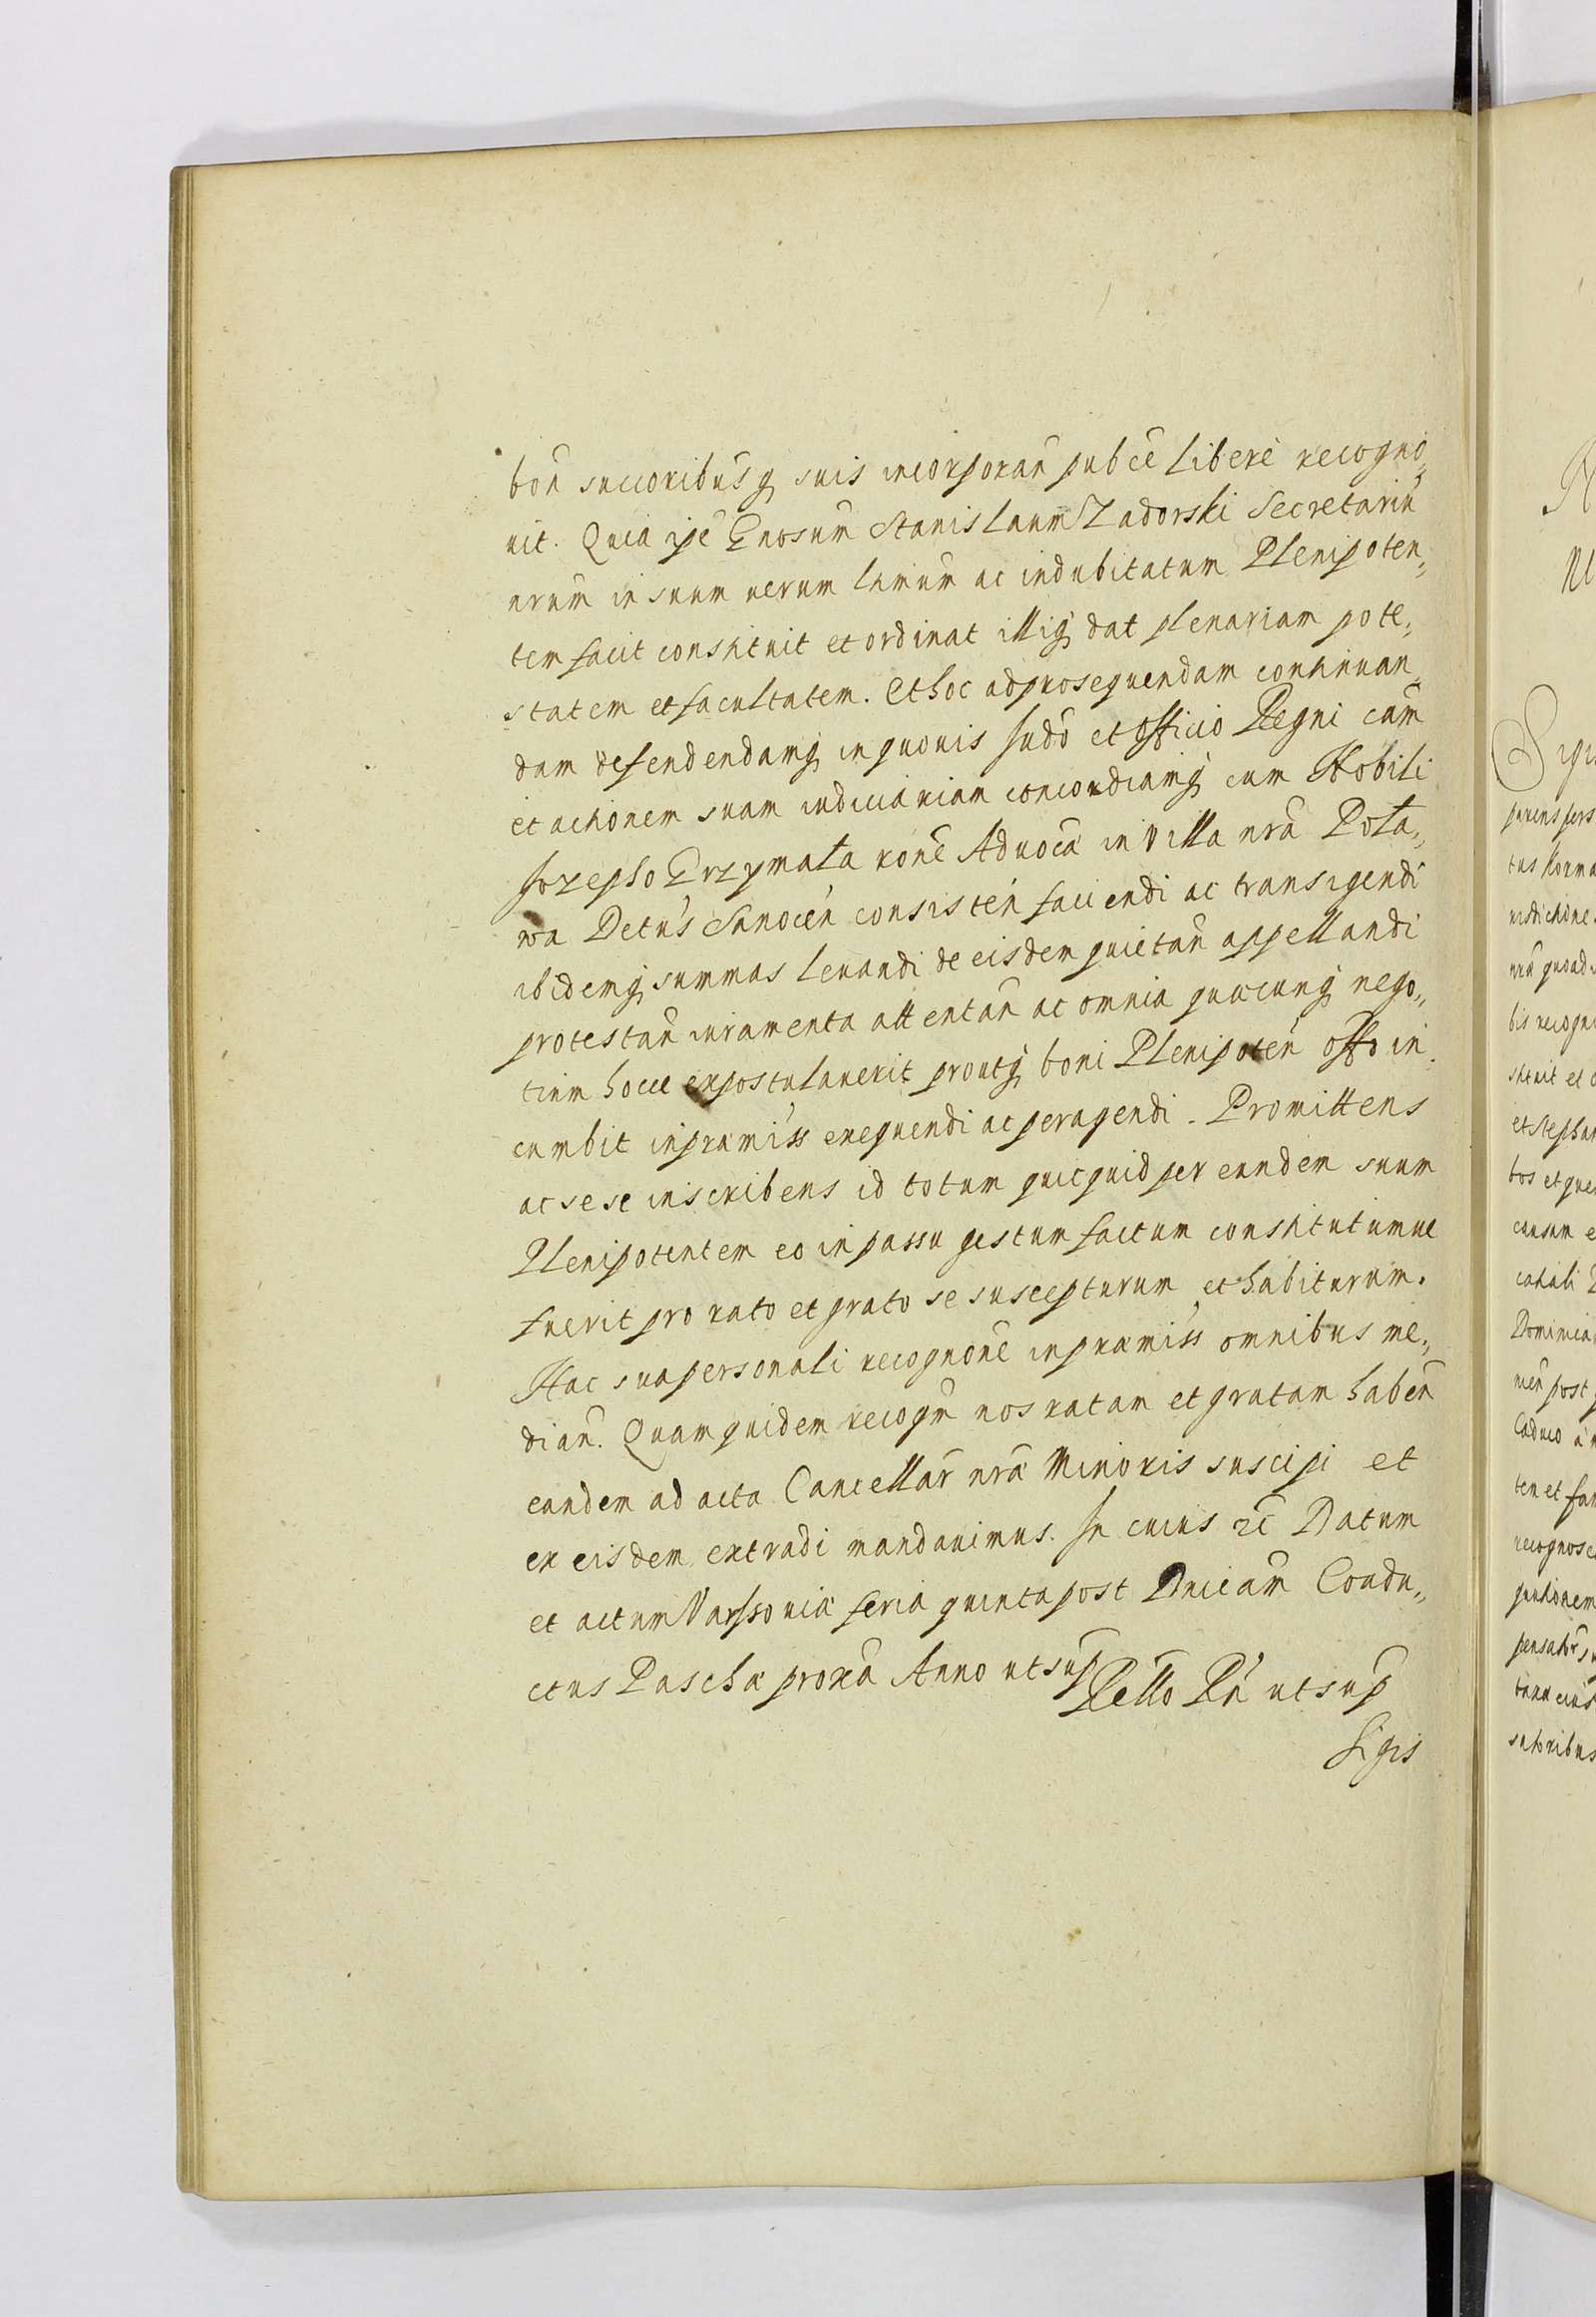 bon̄ succoribusq suis incorporan̄ pubce Libere recogno,,
uit. Quia ipe Gnosum Stanislaum Zadorski Secretariū
nrum in suum uerum Lttmum ac indubitatum Plenipoten,,
tem facit constituit et ordinat illiq dat plenariam pote,,
statem et facultatem. Et hoc ad prosequendam continuan,,
dam defendendamq in quouis Judo et Officio Regni cam
et actionem suam iudiciariam concordiamq cum Nobili
Jozepho Przymała rone Aduoca in Villa nra Poła,,
wa Detus Sanocen consisten faciendi ac transigendi
ibidemq summas leuandi de eisdem quietan appellandi
protestan iuramenta attentan ac omnia quaecunq nego,,
tium hocce expostulauerit proutq boni Plenipoten offo in,,
cumbit in praemiss exequendi ac peragendi. Promittens
ac sese inscribens id totum quicquid per eundem suum
Plenipotentem eo in passu gestum factum constitutumue
fuerit pro rato et grato se suscepturum et habiturum.
Hac sua personali recognone in praemiss omnibus me,,
dian. Quam quidem recogn nos ratam et gratam haben
eandem ad acta Cancellar nra Minoris suscipi et
ex eisdem extradi mandauimus. In cuius rc Datum
et actum Varssouiae feria quinta post Dnicam Condu,,
ctus Paschae proxa Anno ut sup Rello Rn ut sup
Sigis
Sigi
parens pers
tus
nra quoad
bis recogn
stituit et o
et Stephan
bos et que
causam e
Dominica
men post
Caduco a
ten et fa
recognosc